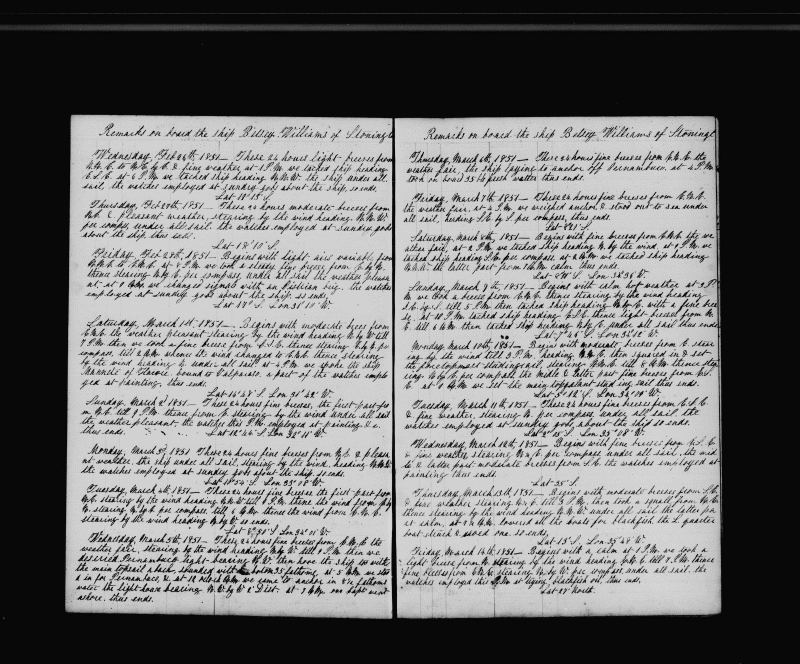 Remarks on board the ship Betsey Williams of Stoningt
Wednesday, Feb 26th 1851 — These 24 hours light breezes from
N.N.E. to N.E. by E. & fine weather at 1 P.M. we tacked ship heading
E.S.E. at 6 P.M. we tacked ship heading N.N.W. the ship under all
sail, the watches employed at sundry gobs about the ship, so ends.
Lat 18° 15' S.
Thursday, Feb 27th 1851 — These 24 hours moderate breezes from
N.E. & pleasant weather, stearing by the wind heading N.N.W.
per compass, under all sail. the watches employed at sundry gobs
about the ship, thus ends.
Lat 18° 10' S.
Friday, Feb 28th 1851 — Begins with light airs variable from
N.N.E. to E.N.E. at 8 P.M. we took a steady fine breeze from E. by N.
thence stearing N. by E. per compass, under all sail the weather pleasa
nt. at 9 A.M. we changed signals with an brig. the watches
employed at sundry gobs about the ship. so ends.
Saturday, March 1st 1851 — Begins with moderate breeze from
E.N.E. the weather pleasant stearing by the wind heading N. by W. till
7 P.M. then we took a fine breeze from E.S.E. thence stearing N. by E. per
compass, till 2 A.M. whence the wind changed to E.N.E. thence stearing
by the wind heading N. under all sail at 4 P.M. we spoke the ship
of Havre bound to Valparaso, a part of the watches emplo
yed at painting, thus ends.
Sunday, March 2d 1851 — These 24 hours fine breezes, the first part fro
m N.E. till 9 P.M. thence from N. stearing by the wind under all sail
the weather pleasant, the watches this P.M. employed at painting & c.
thus ends.
Monday, March 3d, 1851 — These 24 hours fine breezes from N.E. & pleasa
nt weather, the ship under all sail, stearing by the wind, heading N.N.W.
the watches employed at sundry gobs about the ship. so ends.
Tuesday, March 4th, 1851 — These 24 hours fine breezes the first part from
N.E. stearing by the wind heading N.N.W. till 8 P.M. thence the wind from N. by
stearing N. by E. per compass, till 6 A.M. thence the wind from E.N.E.
stearing by the wind heading N. by W. so ends.
Wednesday, March 5th, 1851 — These 24 hours fine breezes from N.E. the
weather fair, stearing by the wind heading N. by W. till 9 P.M. then we
descried Pernambuco light bearing N.W. then hove the ship to with
the main topsail aback, sounded with bottom 35 fathoms at 5 A.M. we stoo
d in for Pernambuco, & at 10 oclock A.M. we came to anchor in fathoms
water the light house bearing N.W. by W. 2 Dist. at 7 A.M. our Capt went
ashore. thus ends.
Remarks on board the ship Betsey Williams of Stoningt
Thursday, March 6th, 1851 — These 24 hours fine breezes from E.N.E. the
weather fair, the ship laying to anchor off Pernambuco, at 4 P.M.
took on board 35 bbls fresh watter thus ends.
Friday, March 7th, 1851 — These 24 hours fine breezes from E.N.E.
the weather fair, at 2 P.M. we weighed anchor & stood out to sea under
all sail, heading S.E. by S. per compass, thus ends.
Saturday, March 8th, 1851 — Begins with fine breezes from E.N.E. the we
ather fair, at 2 P.M. we tacked ship heading N. by the wind, at 8 P.M. we
tacked ship heading S.E. per compass. at 2 A.M. we tacked ship heading
N.N.W. the latter part from 8 A.M. calm thus ends.
Sunday, March 9th, 1851 — Begins with calm hot weather at 3 P.
M. we took a breeze from E.N.E. thence stearing by the wind heading
till 5 P.M. then tacked ship heading with a fine bree
ze, at 10 P.M. tacked ship heading E.S.E. thence light breezes from N.
E. till 4 A.M. then tacked ship heading N. by E. under all sail thus ends.
Monday, March 10th, 1851 — Begins with moderate breezes from E. stear
ing by the wind till 3 P.M. heading N.N.E. then squared in & set
the foretopmast studingsail stearing N.N.E. till 8 A.M. thence stea
ring N. by E. per compass, the middle & latter part fine breezes from E.S.
E. at 9 A.M. we set the main topgalant studing sail thus ends.
Tuesday, March 11th, 1851 — These 24 hours fine breezes from E.S.E.
& fine weather, stearing N. per compass under all sail. the
watches employed at sundry gobs about the ship so ends.
Wednesday, March 12th, 1851 — Begins with fine breezes from S.E.
& fine weather stearing N. by E. per compass under all sail, the mid
& latter part moderate breezes from S.E. the watches employed at
painting thus ends.
Lat 35' S.
Thursday, March 13th 1851 — Begins with moderate breezes from S.E.
& fine weather stearing till 3 P.M. then took a squall from
thence stearing by the wind heading N.N.W. under all sail the latter par
t calm, at 9 A.M. lowered all the boats for blackfish the L. quarter
boat struck & saved one. so ends.
Friday, March 14th 1851 — Begins with a calm at 1 P.M. we took a
light breeze from N. stearing by the wind heading till 7 P.M. thence
fine breezes from stearing N. by W. per compass under all sail. the
watches employed this P.M. at trying blackfish oil, thus ends.